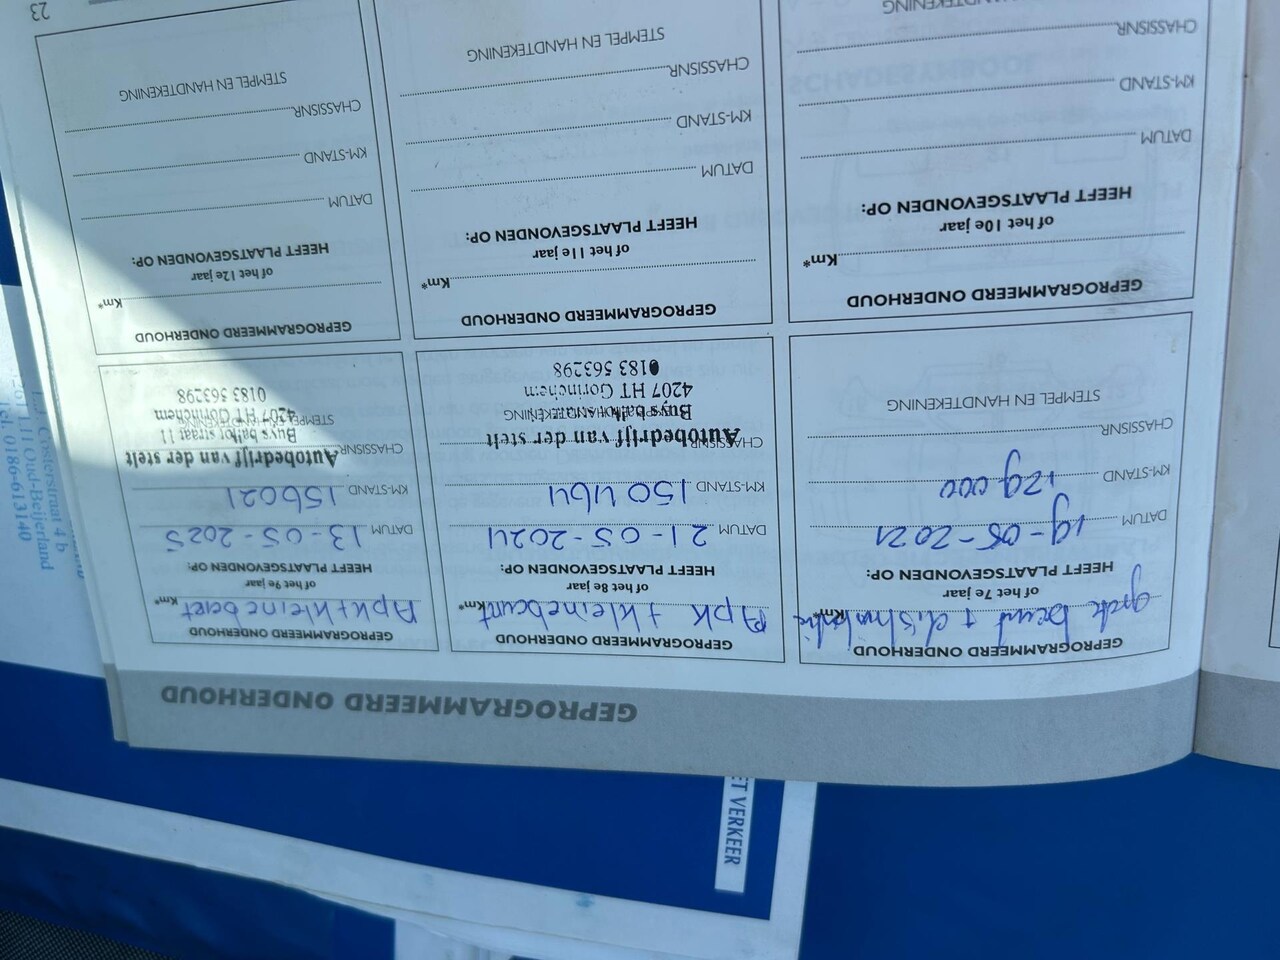 GEPROGRAMMEERD ONDERHOUD
GEPROGRAMMEERD ONDERHOUD
grote beurt + distributie Km*
of het 7e jaar
HEEFT PLAATSGEVONDEN OP:
DATUM 19-05-2021
KM-STAND 129.000
CHASSISNR.
STEMPEL EN HANDTEKENING
GEPROGRAMMEERD ONDERHOUD
APK + kleine beurt Km*
of het 8e jaar
HEEFT PLAATSGEVONDEN OP:
DATUM 21-05-2024
KM-STAND 150464
CHASSISNR.
Autobedrijf van der stelt
Buys ballotstraat
STEMPEL EN HANDTEKENING
4207 HT Gorinchem
0183 563298
GEPROGRAMMEERD ONDERHOUD
APK + kleine beurt Km*
of het 9e jaar
HEEFT PLAATSGEVONDEN OP:
DATUM 13-05-2025
KM-STAND 156021
CHASSISNR.
Autobedrijf van der stelt
Buys ballotstraat 11
STEMPEL EN HANDTEKENING
4207 HT Gorinchem
0183 563298
GEPROGRAMMEERD ONDERHOUD
Km*
of het 10e jaar
HEEFT PLAATSGEVONDEN OP:
DATUM
KM-STAND
CHASSISNR.
HANDTEKENING
GEPROGRAMMEERD ONDERHOUD
Km*
of het 11e jaar
HEEFT PLAATSGEVONDEN OP:
DATUM
KM-STAND
CHASSISNR.
STEMPEL EN HANDTEKENING
GEPROGRAMMEERD ONDERHOUD
Km*
of het 12e jaar
HEEFT PLAATSGEVONDEN OP:
DATUM
KM-STAND
CHASSISNR.
STEMPEL EN HANDTEKENING
23
ET VERKEER
Oosterstraat 4 b
Oud-Beijerland
Tel. 0186-613140